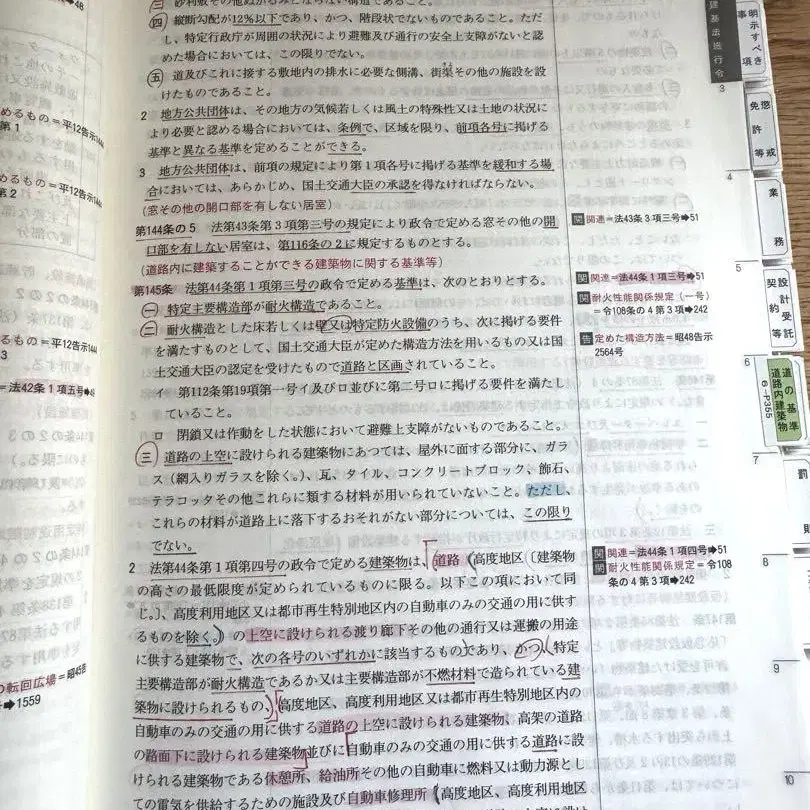 ㈣ 縦断勾配が12%以下であり、かつ、階段状でないものであること。ただ
し、特定行政庁が周囲の状況により避難及び通行の安全上支障がないと認
めた場合においては、この限りでない。
㈤ 道及びこれに接する敷地内の排水に必要な側溝、街渠その他の施設を設
けたものであること。
2 地方公共団体は、その地方の気候若しくは風土の特殊性又は土地の状況に
より必要と認める場合においては、条例で、区域を限り、前項各号に掲げる
基準と異なる基準を定めることができる。
3 地方公共団体は、前項の規定により第1項各号に掲げる基準を緩和する場
合においては、あらかじめ、国土交通大臣の承認を得なければならない。
(窓その他の開口部を有しない居室)
第144条の5 法第43条第3項第三号の規定により政令で定める窓その他の開
口部を有しない居室は、第116条の2に規定するものとする。
(道路内に建築することができる建築物に関する基準等)
第145条 法第44条第1項第三号の政令で定める基準は、次のとおりとする。
㈠ 特定主要構造部が耐火構造であること。
㈡ 耐火構造とした床若しくは壁又は特定防火設備のうち、次に掲げる要件
を満たすものとして、国土交通大臣が定めた構造方法を用いるもの又は国
土交通大臣の認定を受けたもので道路と区画されていること。
イ 第112条第19項第一号イ及びロ並びに第二号ロに掲げる要件を満たし
ていること。
ロ 閉鎖又は作動をした状態において避難上支障がないものであること。
㈢ 道路の上空に設けられる建築物にあつては、屋外に面する部分に、ガラ
ス(網入りガラスを除く。)、瓦、タイル、コンクリートブロック、飾石、
テラコッタその他これらに類する材料が用いられていないこと。ただし、
これらの材料が道路上に落下するおそれがない部分については、この限り
でない。
2 法第44条第1項第四号の政令で定める建築物は、道路(高度地区(建築物
の高さの最低限度が定められているものに限る。以下この項において同
じ。)、高度利用地区又は都市再生特別地区内の自動車のみの交通の用に供す
るものを除く。)の上空に設けられる渡り廊下その他の通行又は運搬の用途
に供する建築物で、次の各号のいずれかに該当するものであり、かつ、特定
主要構造部が耐火構造であるか又は主要構造部が不燃材料で造られている建
築物に設けられるもの、高度地区、高度利用地区又は都市再生特別地区内の
自動車のみの交通の用に供する道路の上空に設けられる建築物、高架の道路
の路面下に設けられる建築物並びに自動車のみの交通の用に供する道路に設
けられる建築物である休憩所、給油所その他の自動車に燃料又は動力源とし
ての電気を供給するための施設及び自動車修理所(高度地区、高度利用地区
関 関連=法43条3項三号➡51
関 関連=法44条1項三号➡51
関 耐火性能関係規定(一号)
=令108条の4第3項➡242
告 定めた構造方法=昭48告示
2564号
関 関連=法44条1項四号➡51
関 耐火性能関係規定=令108
条の4第3項➡242
建基法施行令
明示すべき
事項
3
免許等
懲戒
4
業務
5
設計受託
契約等
6
道の基準
道路内建築物
⊖-P355
7
罰
則
8
9
10
めるもの=平12告示
第1
めるもの=平12告示
第2
めるもの=平12告示
3
=法42条1項五号➡
の転回広場=昭45告
➡1559